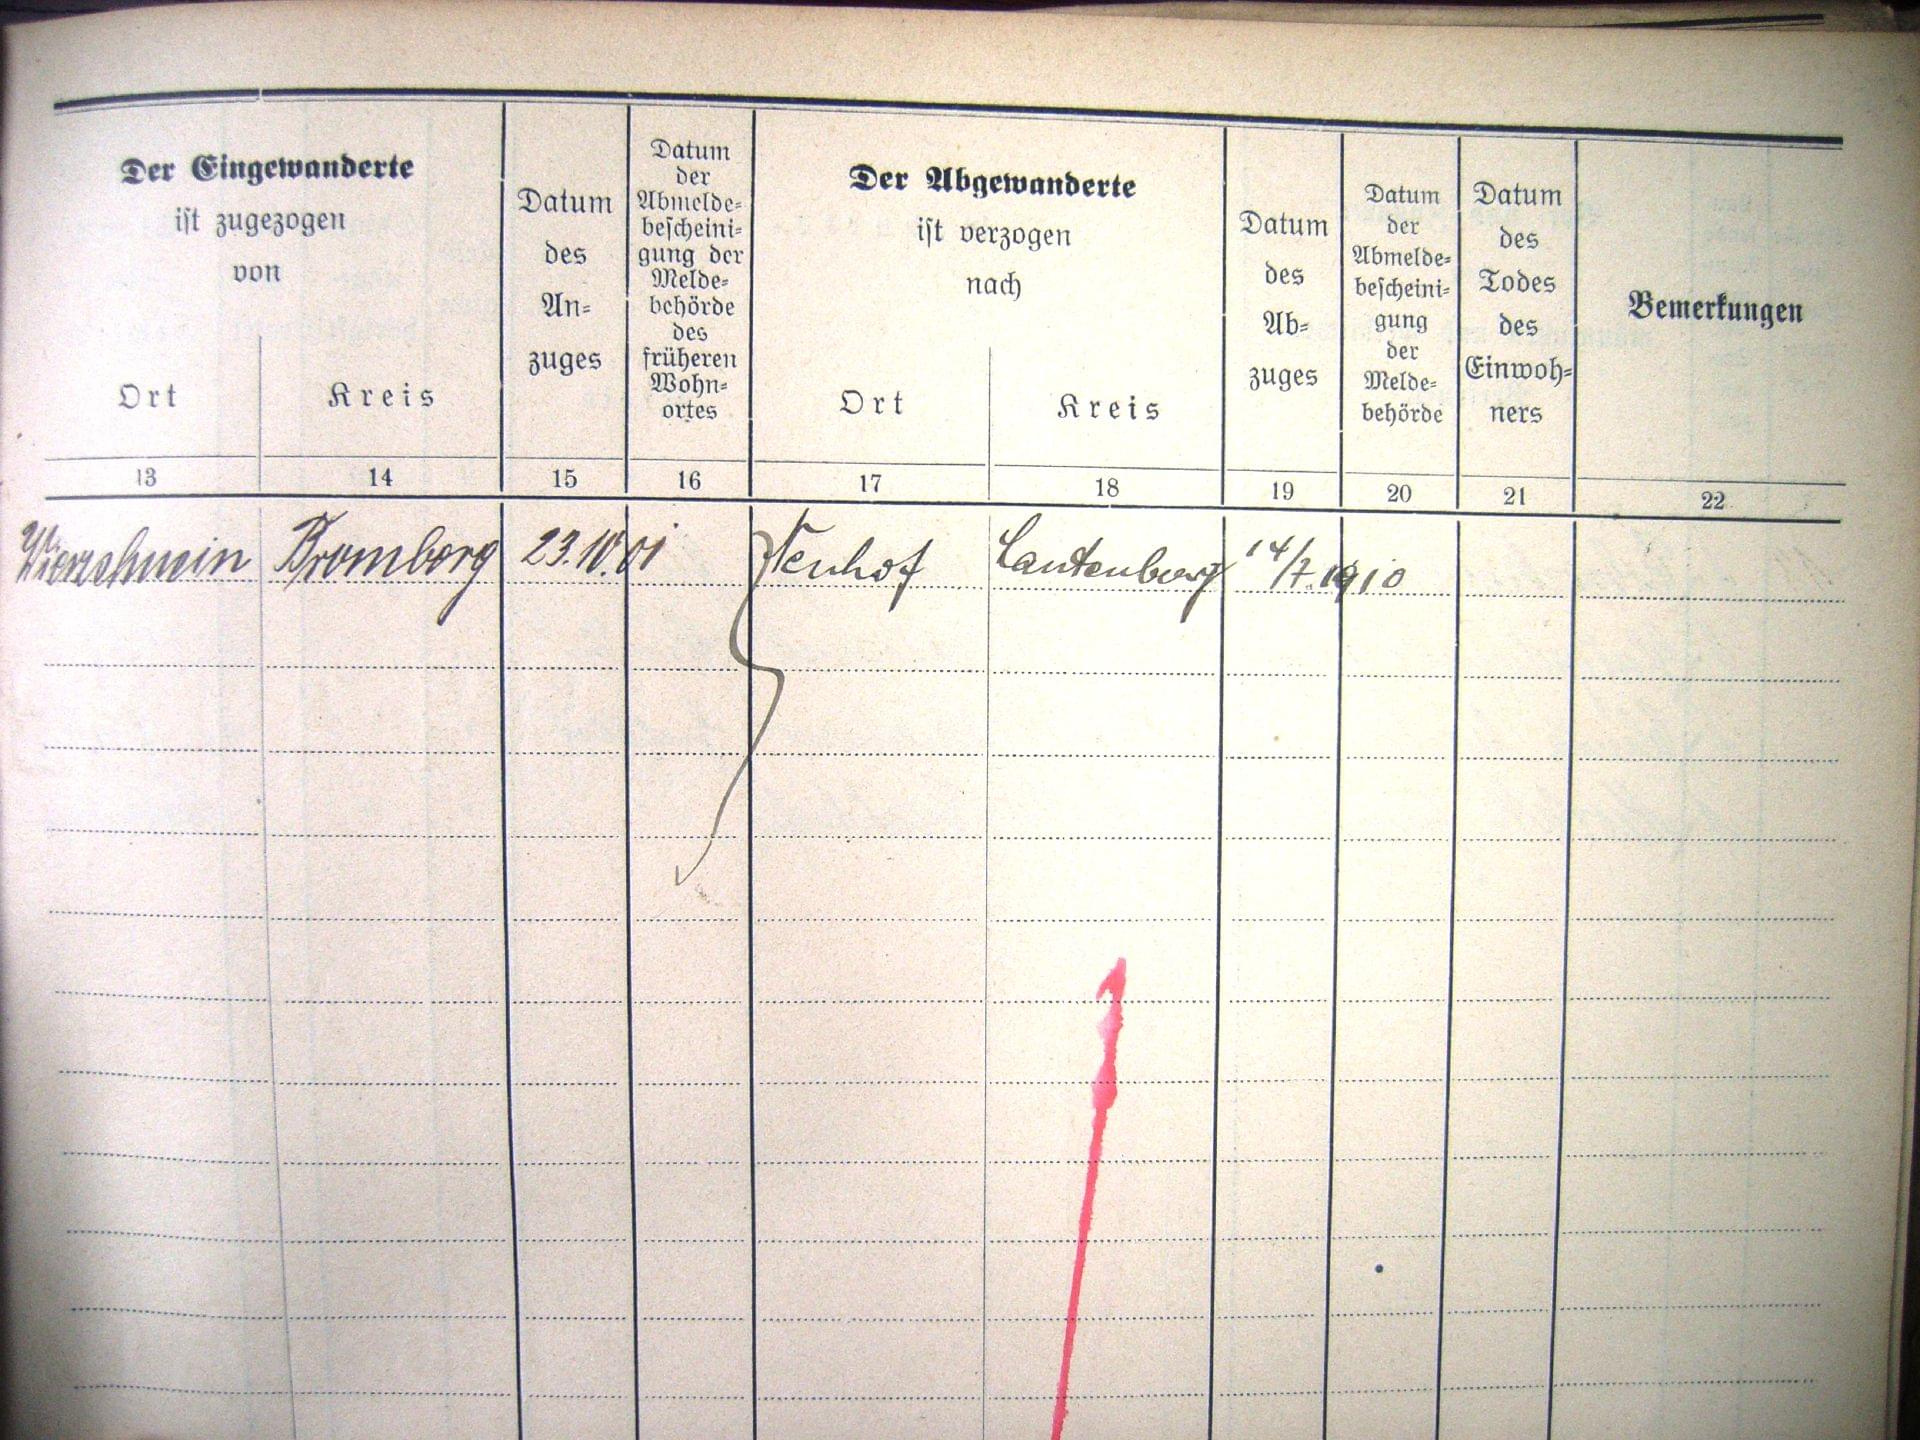 Der Eingewanderte
ist zugezogen
von
Ort
Kreis
Datum
des
An-
zuges
Datum
der
Abmelde-
bescheini-
gung der
Melde-
behörde
des
früheren
Wohn-
ortes
Der Abgewanderte
ist verzogen
nach
Ort
Kreis
Datum
des
Ab-
zuges
Datum
der
Abmelde-
bescheini-
gung
der
Melde-
behörde
Datum
des
Todes
des
Einwoh-
ners
Bemerkungen
13 14 15 16 17 18 19 20 21 22
Bromberg 23.10.01 Neuhof Lautenburg 14/7.1910